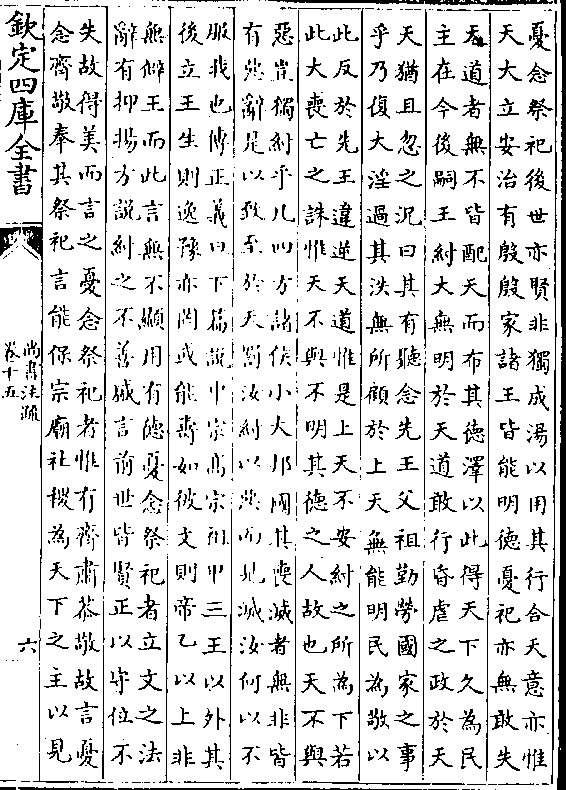 憂念祭祀後世亦賢非獨成湯以用其行合天意亦惟
天大立安治有殷殷家諸王皆能明德憂祀亦無敢失
天道者無不皆配天而布其德澤以此得天下久為民
主在今後嗣王紂大無明於天道敢行昏虐之政於天
天猶且忽之況曰其有聽念先王父祖勤勞國家之事
乎乃復大淫過其泆無所顧於上天無能明民為敬以
此反於先王違逆天道惟是上天不安紂之所為下若
此大喪亡之誅惟天不與不明其德之人故也天不與
惡豈獨紂乎凡四方諸侯小大邦國其喪滅者無非皆
有惡辭是以致至於天罰汝紂以惡而見滅汝何以不
服我也傳正義曰下篇說中宗高宗祖甲三王以外其
後立王生則逸豫亦罔或能壽如彼文則帝乙以上非
無僻王而此言無不顯用有德憂念祭祀者立文之法
辭有抑揚方說紂之不善盛言前世皆賢正以守位不
失故得美而言之憂念祭祀者惟有齊肅恭敬故言憂
念齊敬奉其祭祀言能保宗廟社稷為天下之主以見
欽定四庫全書
尚書注疏
卷十五
六